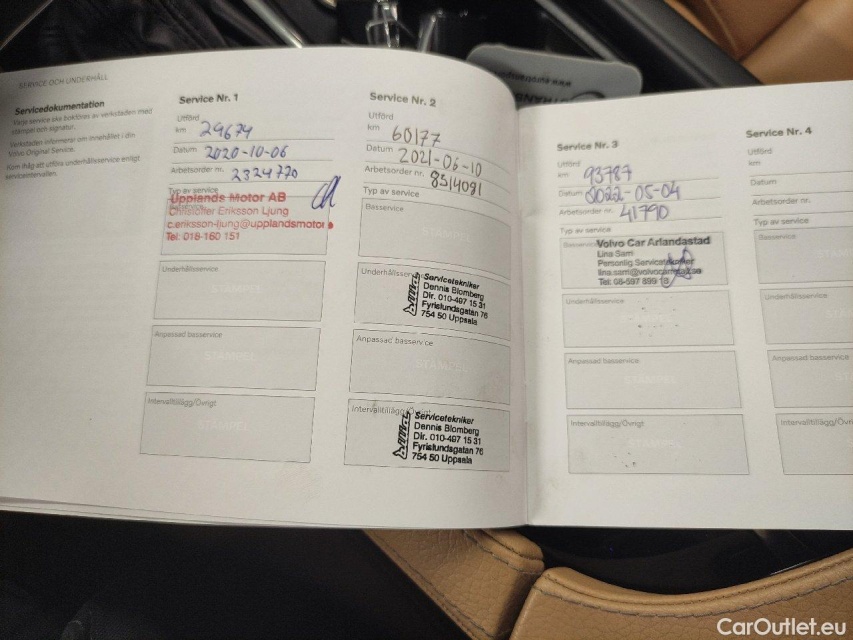 SERVICE OCH UNDERHÅLL
Servicedokumentation
Varje service ska bokföras av verkstaden med
stämpel och signatur.
Verkstaden informerar om innehållet i din
Volvo Original Service.
Kom ihåg att utföra underhållsservice enligt
serviceintervallen.
Service Nr. 1
Utförd
km 29674
Datum 2020-10-06
Arbetsorder nr. 2324770
Typ av service
Upplands Motor AB
Christoffer Eriksson Ljung
c.eriksson-ljung@upplandsmotor
Tel: 018-160 151
Underhållsservice
STAMPEL
Anpassad basservice
STAMPEL
Intervalltillägg/Övrigt
STAMPEL
Service Nr. 2
Utförd
km 60177
Datum 2021-06-10
Arbetsorder nr. 8514091
Typ av service
Basservice
STAMPEL
Underhållsservice
Servicetekniker
Dennis Blomberg
Dir. 010-497 15 31
Fyrislundsgatan 76
754 50 Uppsala
Anpassad basservice
STAMPEL
Intervalltillägg/Övrigt
Servicetekniker
Dennis Blomberg
Dir. 010-497 15 31
Fyrislundsgatan 76
754 50 Uppsala
Service Nr. 3
Utförd
km 93787
Datum 2022-05-04
Arbetsorder nr. 41790
Typ av service
Basservice
Volvo Car Arlandastad
Lina Sam
Personlig Servicetekniker
lina.sam@volvocarretail.se
Tel: 08-597 899 18
Underhållsservice
Anpassad basservice
Intervalltillägg/Övrigt
Service Nr. 4
Utförd
km
Datum
Arbetsorder nr.
Typ av service
Basservice
Underhållsservice
Anpassad basservice
Intervalltillägg/Övri
CarOutlet.eu